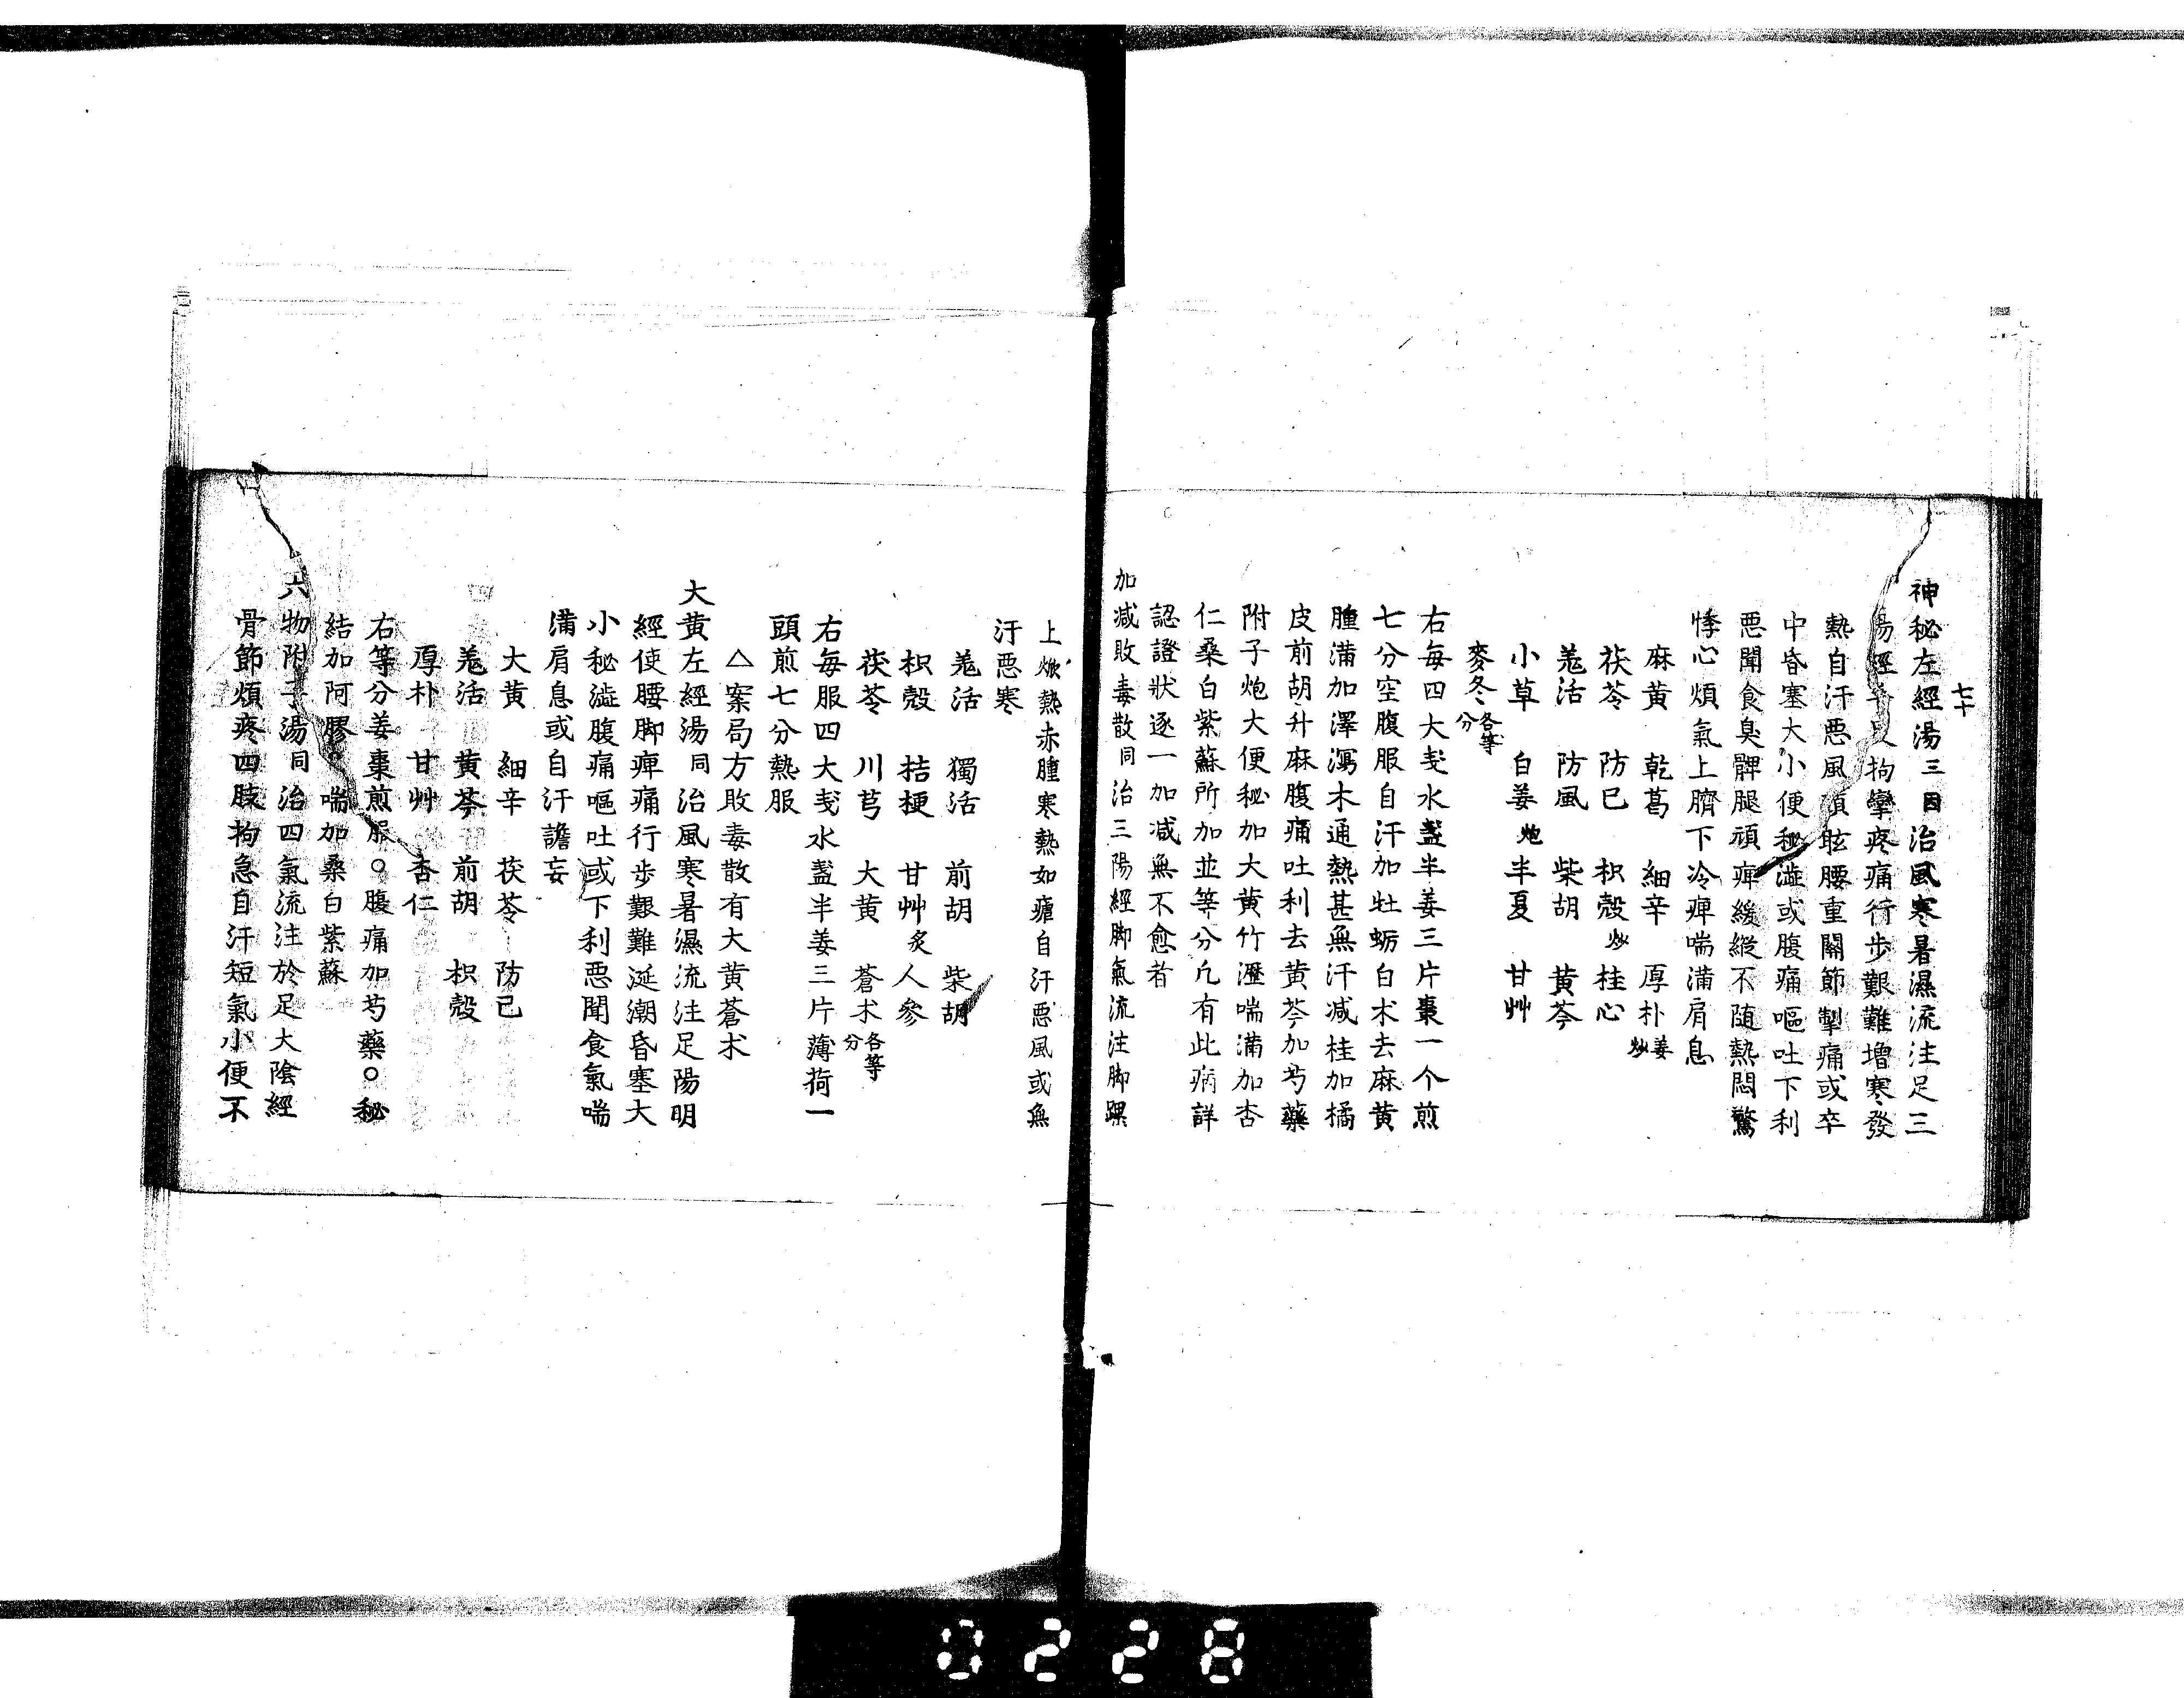 七十
神秘左經湯三因治風寒暑濕流注足三
陽經手足拘攣疼痛行步艱難增寒發
熱自汗悪風頭眩腰重關節掣痛或卒
中昏塞大小便秘澁或腹痛嘔吐下利
悪聞食臭髀腿頑痺緩縱不随熱悶驚
悸心煩氣上臍下冷痺喘満肩息
麻黄 乾葛 細辛 厚朴姜炒
茯苓 防已 枳殻炒 桂心
羗活 防風 柴胡 黄芩
小草 白姜炮 半夏 甘艸
麥冬各等分
右毎四大戔水盞半姜三片棗一个煎
七分空腹服自汗加牡蛎白朮去麻黄
腫満加澤瀉木通熱甚無汗减桂加橘
皮前胡升麻腹痛吐利去黄芩加芍藥
附子炮大便秘加大黄竹瀝喘満加杏
仁桑白紫蘇所加並等分凢有此病詳
認證狀逐一加减無不愈者
加减敗毒散同治三陽經脚氣流注脚踝
上焮熱赤腫寒熱如瘧自汗悪風或無
汗悪寒
羗活 獨活 前胡 柴胡
枳殻 桔梗 甘艸炙 人參
茯苓 川芎 大黄 蒼朮各等分
右毎服四大戔水盞半姜三片薄荷一
頭煎七分熱服
△案局方敗毒散有大黄蒼朮
大黄左經湯同治風寒暑濕流注足陽明
經使腰脚痺痛行步艱難涎潮昏塞大
小秘澁腹痛嘔吐或下利悪聞食氣喘
満肩息或自汗譫妄
大黄 細辛 茯苓 防已
羗活 黄芩 前胡 枳殻
厚朴 甘艸 杏仁
右等分姜棗煎服○腹痛加芍藥○秘
結加阿膠○喘加桑白紫蘇
六物附子湯同治四氣流注於足大陰經
骨節煩疼四肢拘急自汗短氣小便不
0228